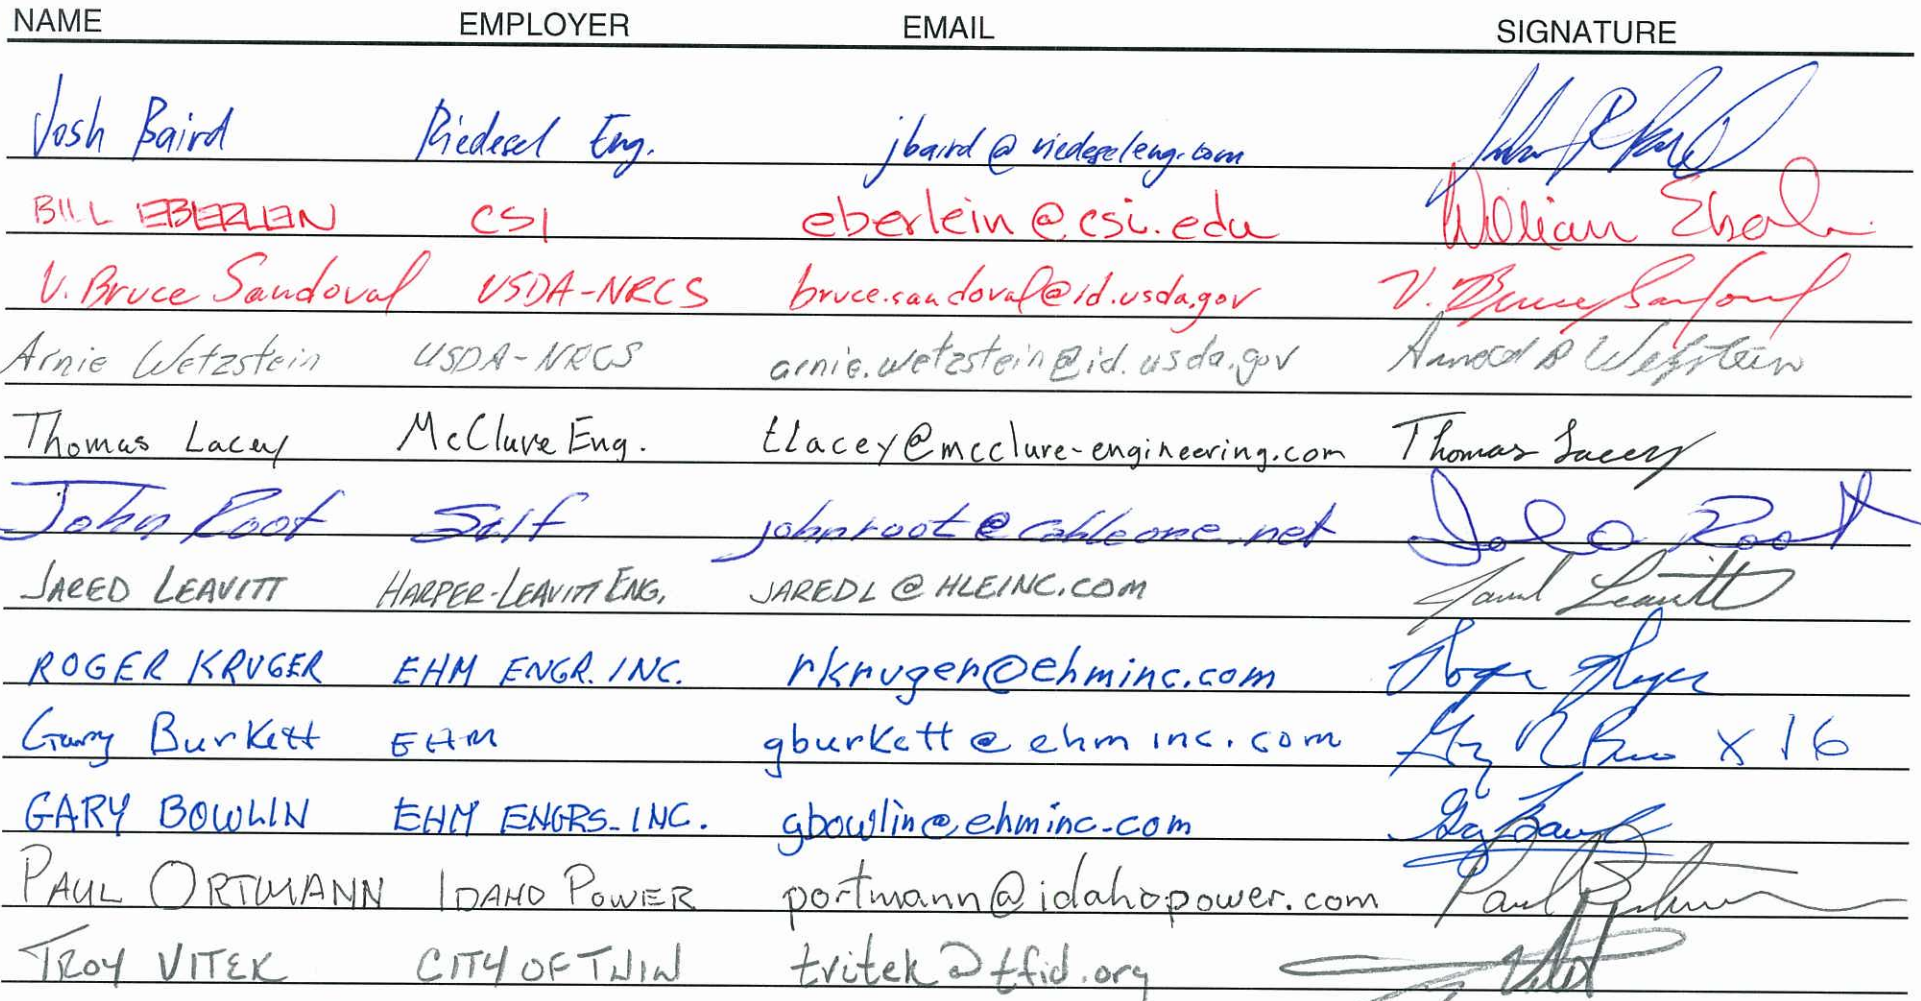 NAME EMPLOYER EMAIL SIGNATURE
Josh Baird Riedesel Eng. jbaird@riedeseleng.com
BILL EBERLEIN CSI eberlein@csi.edu William Eberlein
V. Bruce Sandoval USDA-NRCS bruce.sandoval@id.usda.gov V. Bruce Sandoval
Arnie Wetzstein USDA-NRCS arnie.wetzstein@id.usda.gov Arnold B Wetzstein
Thomas Lacey McClure Eng. tlacey@mcclure-engineering.com Thomas Lacey
John Root Self johnroot@cableone.net John Root
JARED LEAVITT HARPER-LEAVITT ENG. JAREDL@HLEINC.COM Jared Leavitt
ROGER KRUGER EHM ENGR. INC. rkruger@ehminc.com Roger Kruger
Gary Burkett EHM gburkett@ehminc.com x 16
GARY BOWLIN EHM ENGRS. INC. gbowlin@ehminc.com
PAUL ORTMANN IDAHO POWER portmann@idahopower.com Paul Ortmann
TROY VITEK CITY OF TWIN tvitek@tfid.org